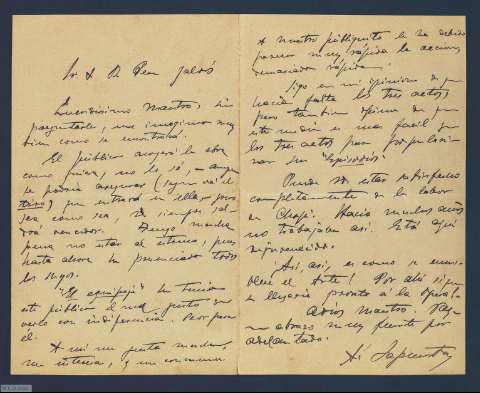 Sr D. B. Perez Galdós
Queridísimo Maestro: Sin
preguntarle, me imagino muy
bien como se encontrará.
El público acogerá la obra
como quiera, no lo sé, — aunque
se podría asegurar (según va el
que entrará en ella, pero
sea como sea, Vd siempre sal-
drá vencedor. Tengo mucha
pena no estar al estreno, pues
hasta ahora he presenciado todos
los suyos.
este público el mal gusto de
verlo con indiferencia. Peor para
él.
A mí me gusta mucho,
me interesa, y me conmueve.
A nuestro publiquito le ha debido
parecer muy rápida la acción,
demasiado rápida.
Sigo en mi opinión de que
hacía falta los tres actos,
pero también opino de que
este medio es mas facil que
los tres actos para populari-
zar sus "Episodios".
Puede Vd estar satisfecho
completamente de la labor
de Chapí. Hacía muchos años
no trabajaba así. Está aquí
rejuvenecido.
Así, así, es como se enno-
blece el Arte! Por ahí sigue
se llegaría pronto á la ópera!
Adios Maestro. Va
un abrazo muy fuerte por
adelantado.